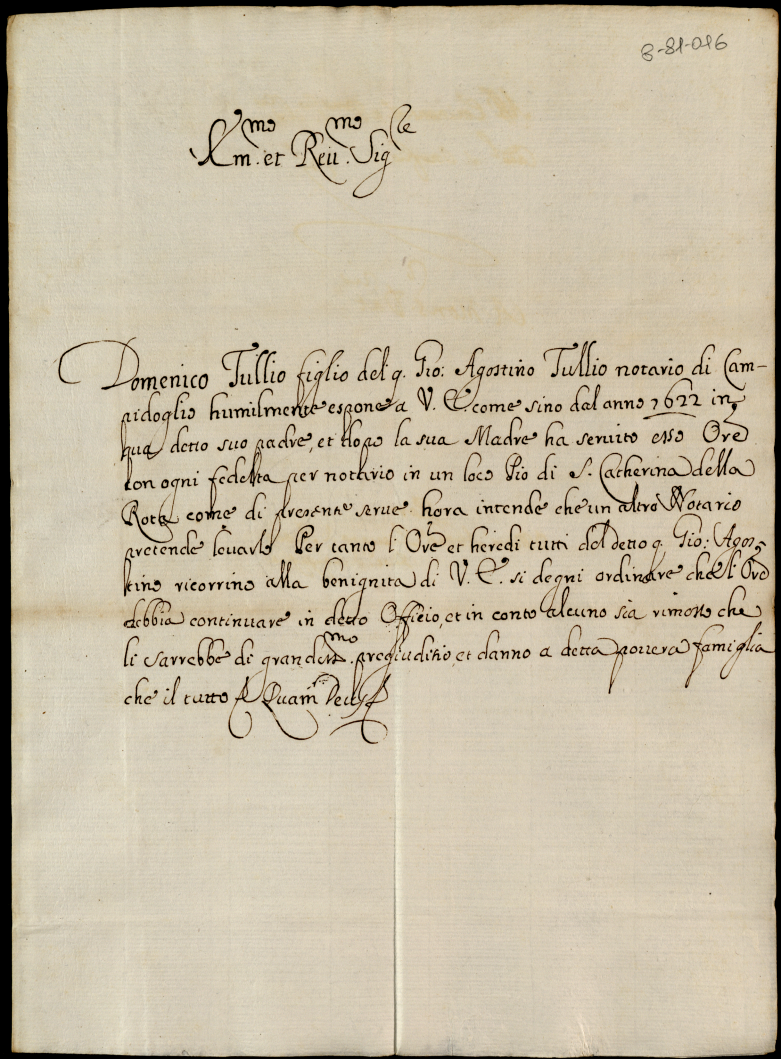 8-81-016
Em.mo et Reu.mo Sig.re
Domenico Tullio figlio del q. Gio: Agostino Tullio notario di Cam-
pidoglio humilmente espone a V. E. come sino dal anno 1622 in
qua detto suo padre, et dopo la sua Madre ha seruito esso Ore
con ogni fedelta per notario in un loco Pio di S. Catherina della
Rota come di presente serue hora intende che un altro Notario
pretende leuarlo Per tanto l'Ore et heredi tutti del detto q. Gio: Agos-
tino ricorrino alla benignita di V. E. si degni ordinare che l'Ore
debbia continuare in detto Officio, et in conto alcuno sia rimosso che
li sarrebbe di grandess.mo pregiuditio, et danno a detta pouera famiglia
che il tutto Quam Deus